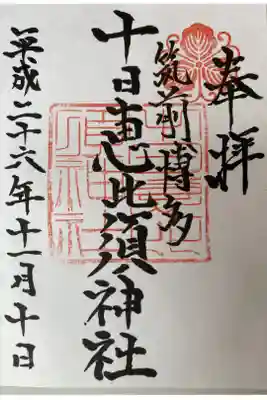 奉拝
筑前博多
十日恵比須神社
平成二十六年十一月十日